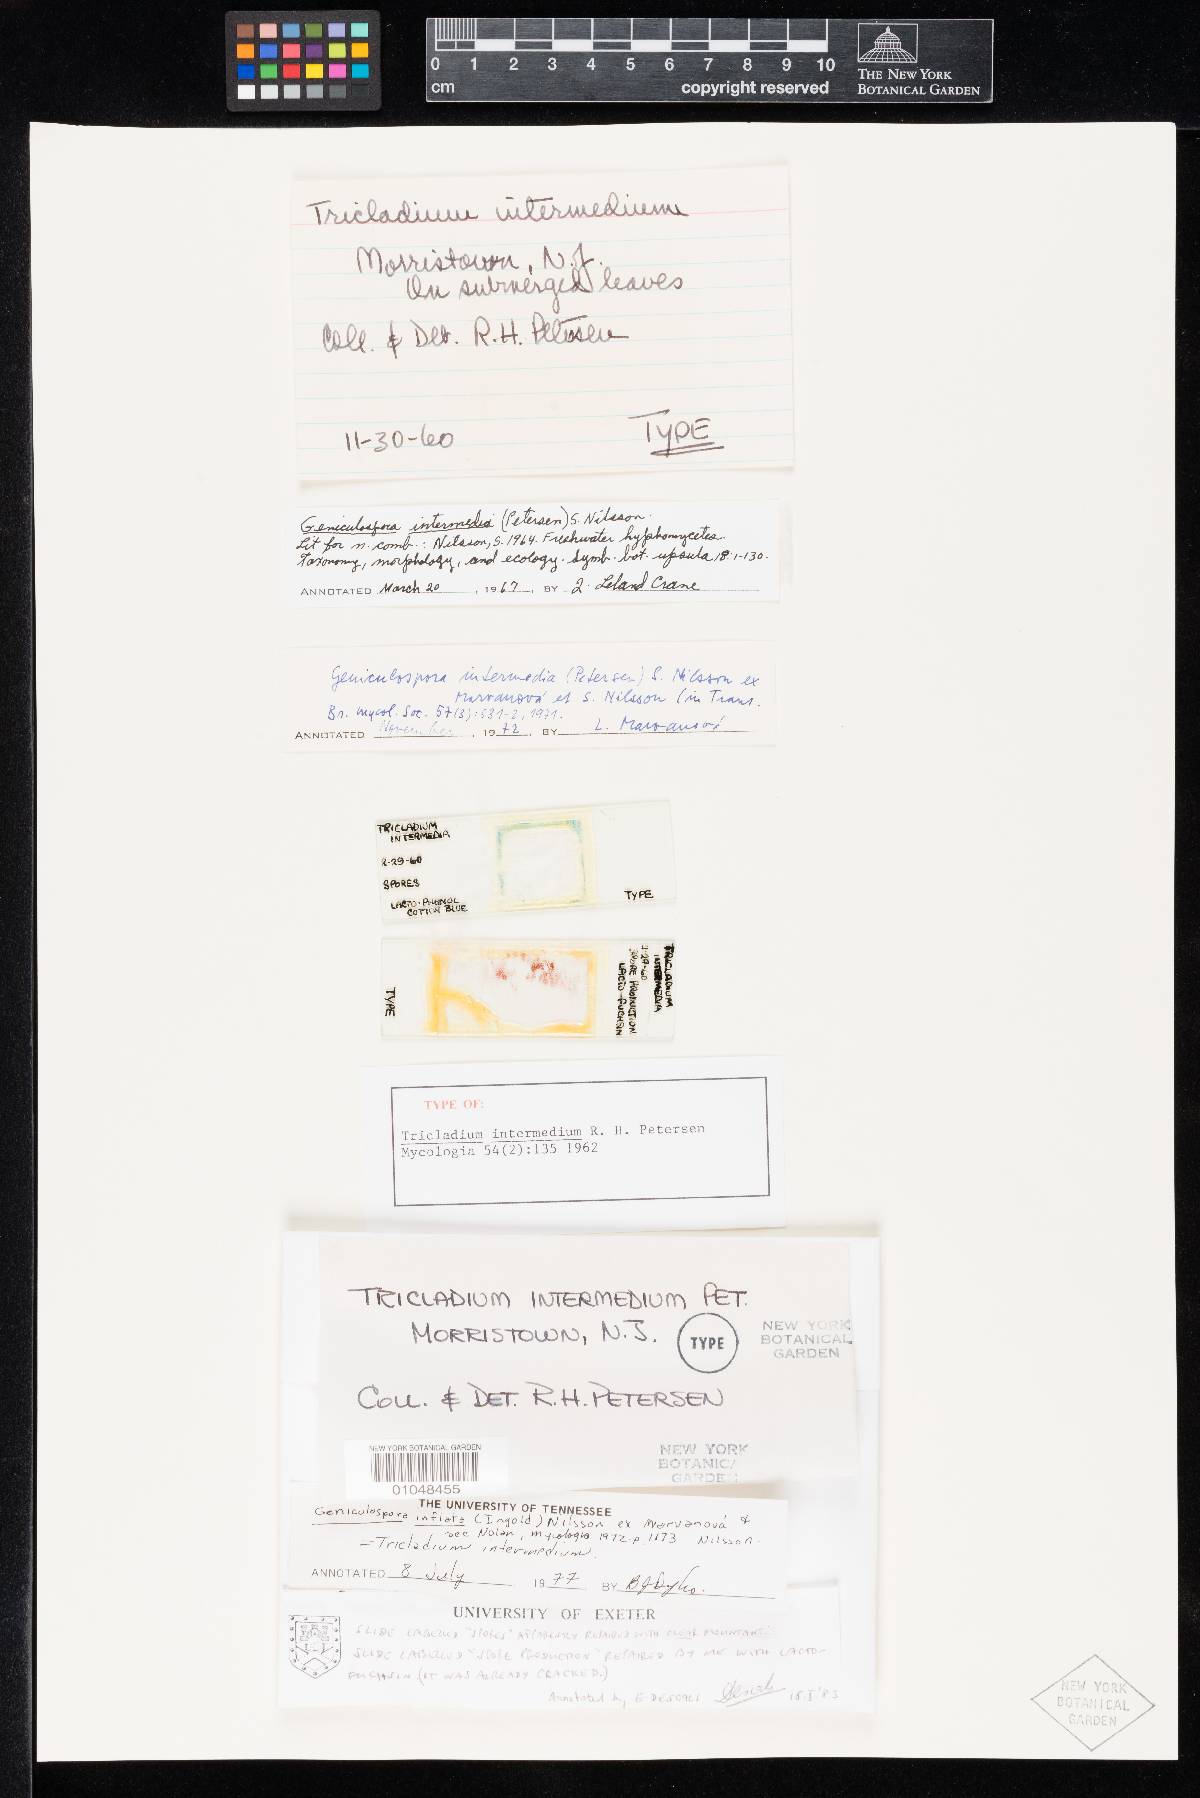 0 1 2 3 4 5 6 7 8 9 10
cm
copyright reserved
THE NEW YORK
BOTANICAL GARDEN
Tricladium intermedium
Morristown, N.J.
On submerged leaves
Coll. & Det. R.H. Petersen
11-30-60
TYPE
Geniculospora intermedia (Petersen) S. Nilsson.
Lit for n. comb.: Nilsson, S. 1964. Freshwater hyphomycetes.
Taxonomy, morphology, and ecology. Symb. bot. upsula 18:1-130.
ANNOTATED March 20, 1967, BY J. Leland Crane
Geniculospora intermedia (Petersen) S. Nilsson ex
Marvanová et S. Nilsson (in Trans.
Br. mycol. Soc. 57(3):531-2, 1971.
ANNOTATED November, 1972, BY L. Marvanová
TRICLADIUM
INTERMEDIA
2-29-60
SPORES
LACTO-PHENOL
COTTON BLUE
TYPE
TRICLADIUM
INTERMEDIA
2-29-60
SPORE PRODUCTION
LACTO-FUCHSIN
TYPE
TYPE OF:
Tricladium intermedium R. H. Petersen
Mycologia 54(2):135 1962
TRICLADIUM INTERMEDIUM PET.
MORRISTOWN, N.J.
TYPE
NEW YORK
BOTANICAL
GARDEN
COLL. & DET. R.H. PETERSEN
NEW YORK BOTANICAL GARDEN
01048455
NEW YORK
BOTANIC
GARDEN
THE UNIVERSITY OF TENNESSEE
Geniculospora inflata (Ingold) Nilsson ex Marvanová &
see Nolan, Mycologia 1972 p. 1173 Nilsson.
= Tricladium intermedium.
ANNOTATED 8 July 1977 BY
UNIVERSITY OF EXETER
SLIDE LABELLED "SPORES" APPARENTLY REPAIRED WITH MOUNTANT.
SLIDE LABELLED "SPORE PRODUCTION" REPAIRED BY ME WITH LACTO-
FUCHSIN (IT WAS ALREADY CRACKED.)
Annotated by E. DESCALS 18.I.'83
NEW YORK
BOTANICAL
GARDEN